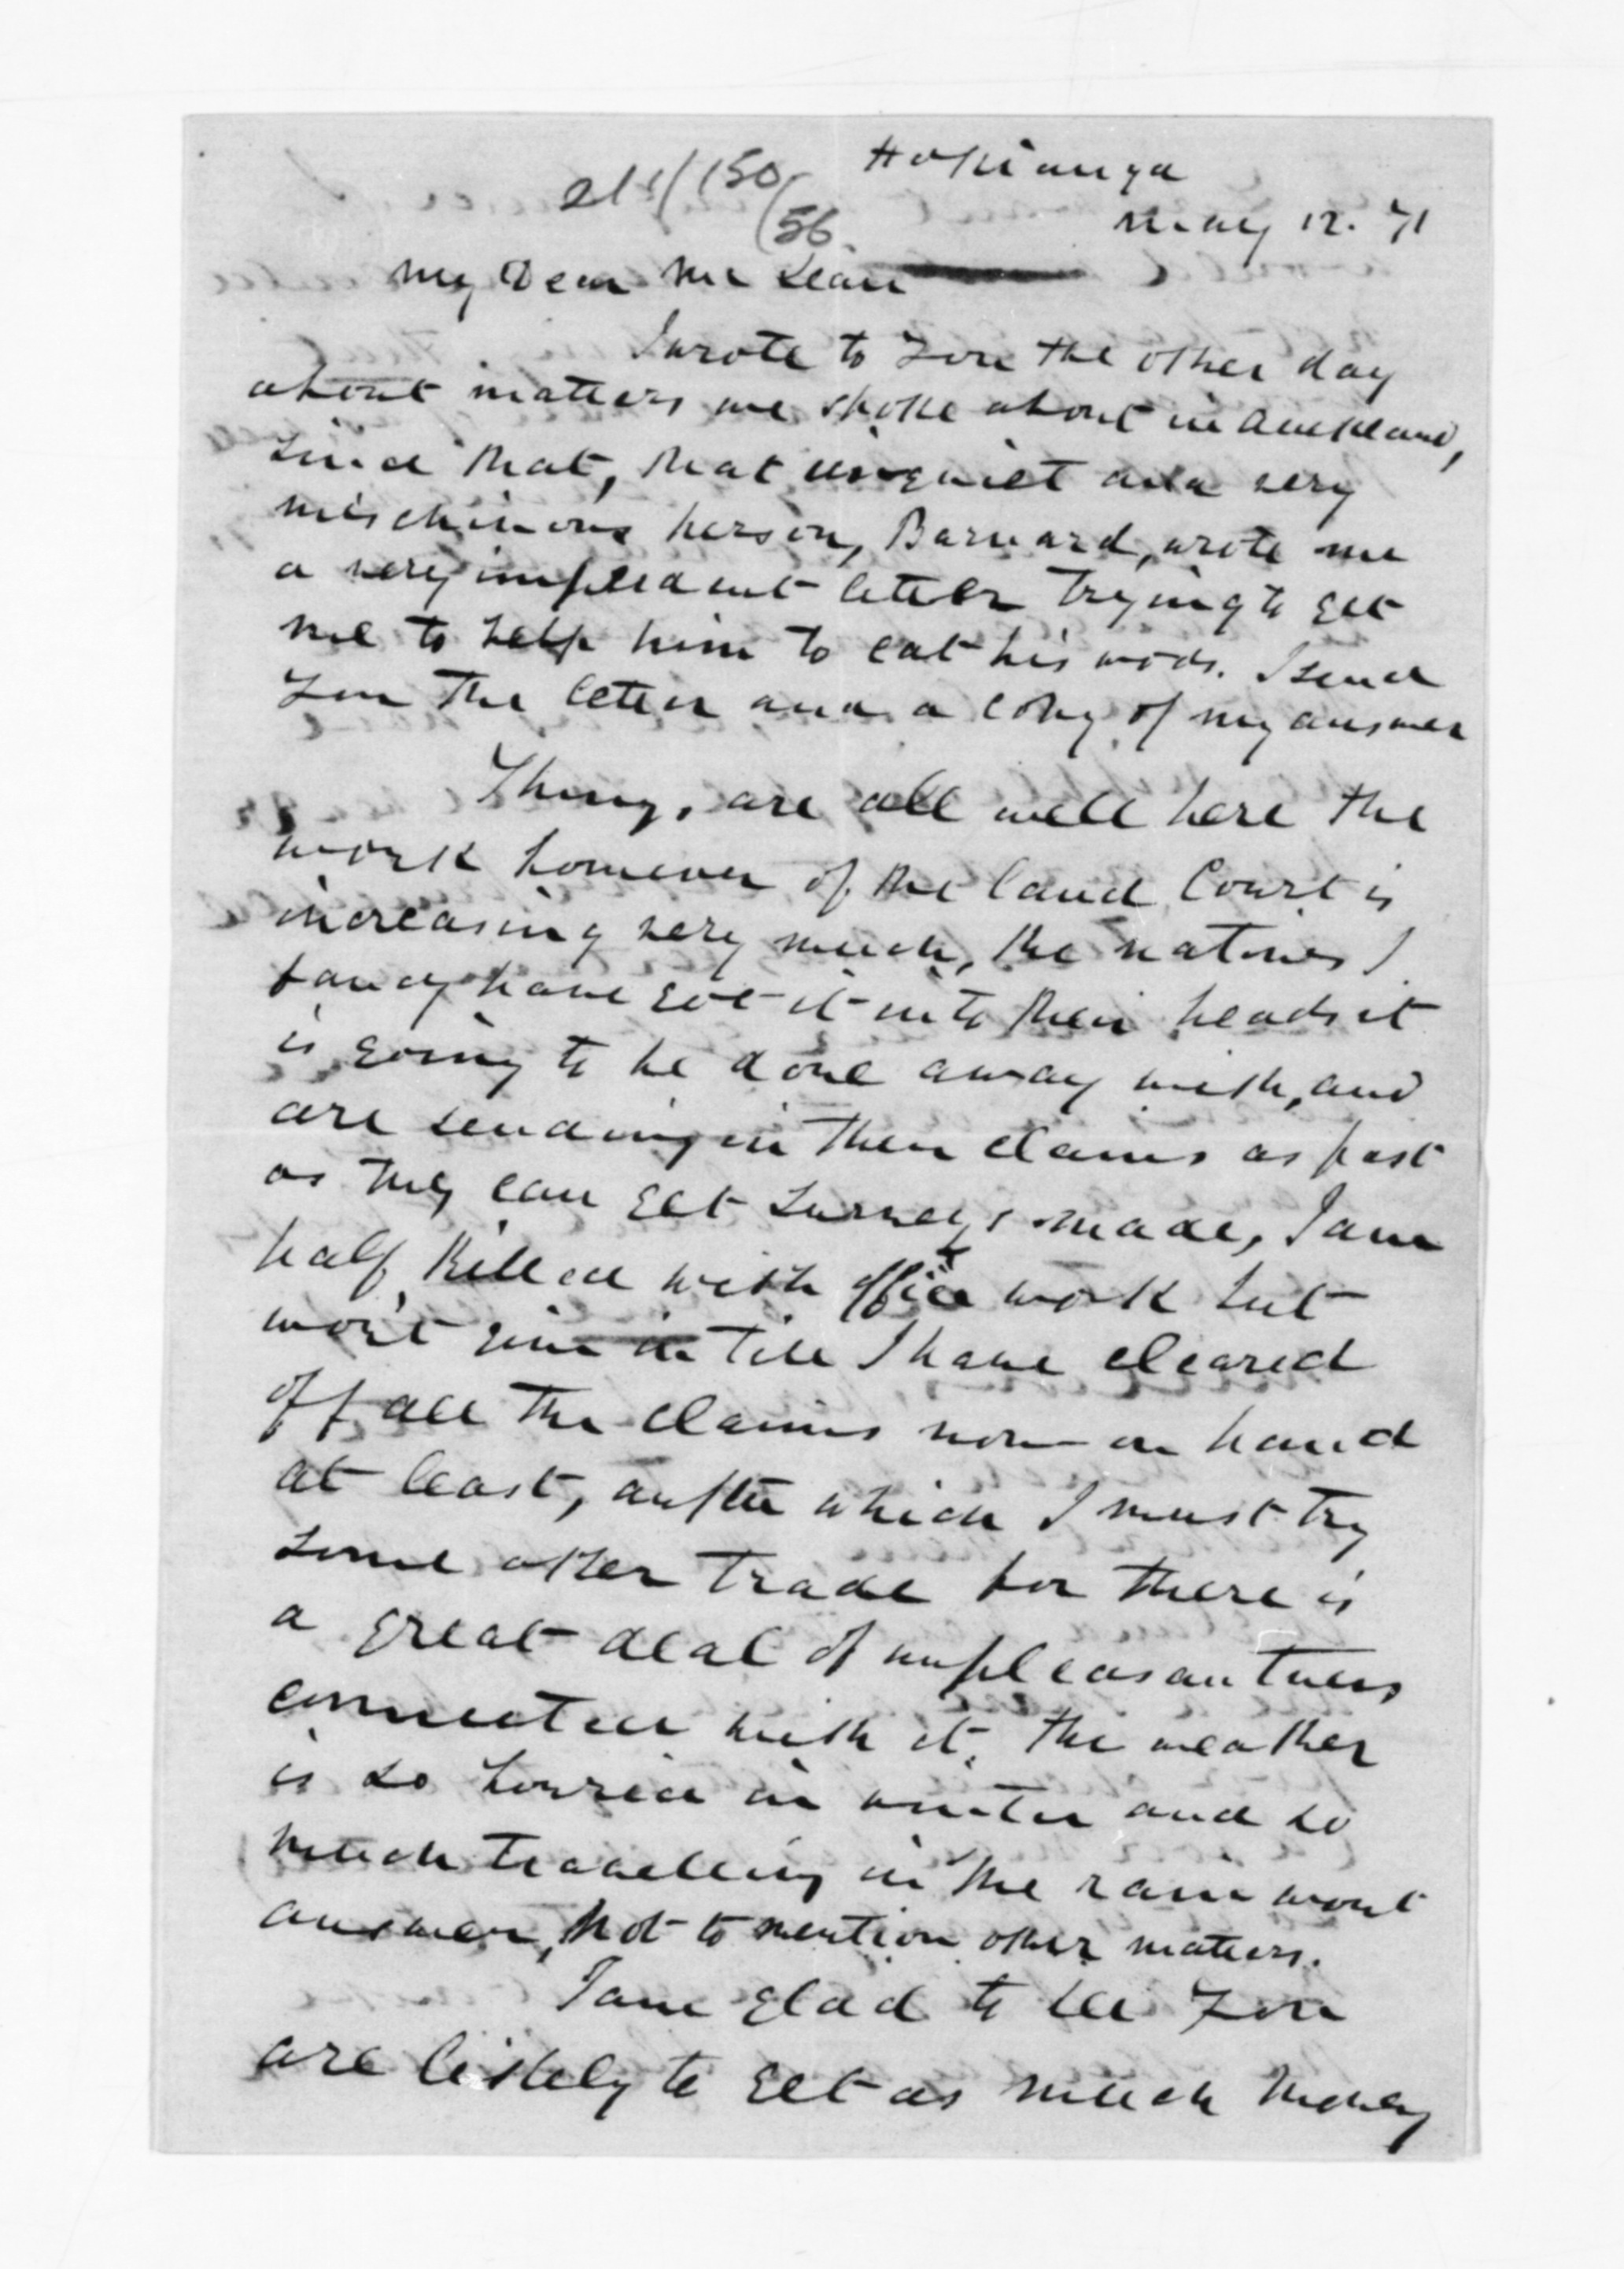 Hokianga
213/(150
(56.
May 12. 71
My Dear Mc Lean
I wrote to you the other day
about matters we spoke about in Auckland,
since that, that unquiet and very
mischievous person, Barnard, wrote me
a very impudent letter trying to get
me to help him to eat his words. I send
you the letter and a copy of my answer
Things are all well here the
work however of the land Court is
increasing very much, the natives I
fancy have got it into their heads it
is going to be done away with, and
are sending in their claims as fast
as they can get surveys made, I am
half killed with office work but
wont give in till I have cleared
off all the claims now on hand
at least, aufter which I must try
some other trade for there is
a great deal of unpleasantness
connected with it. the weather
is so horrid in winter and so
much travelling in the rain wont
answer, not to mention other matters.
I am glad to see you
are likely to get as much money